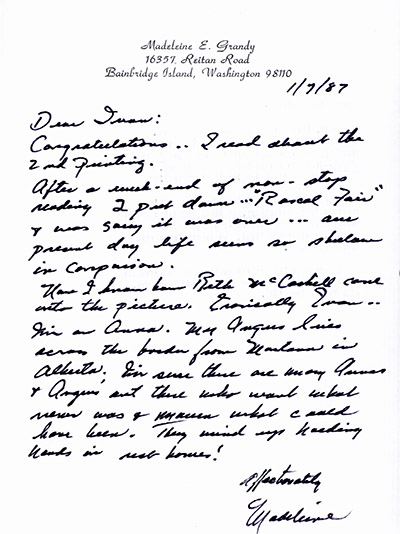 Madeleine E. Grandy
16357 Reitan Road
Bainbridge Island, Washington 98110
1/9/87
Dear Ivan:
Congratulations.. I read about the
2nd Printing.
After a week-end of non-stop
reading I put down "Rascal Fair"
& was sorry it was over ... our
present day life seems so shallow
in comparison.
Now I know how Beth McCaskell came
into the picture. Ironically Ivan..
I'm an Anna. My Angus lives
across the border from Montana in
Alberta. I'm sure there are many Annas
& Angus' out there who want what
never was & what could
have been. They wind up holding
hands in rest homes!
Affectionately
Madeleine